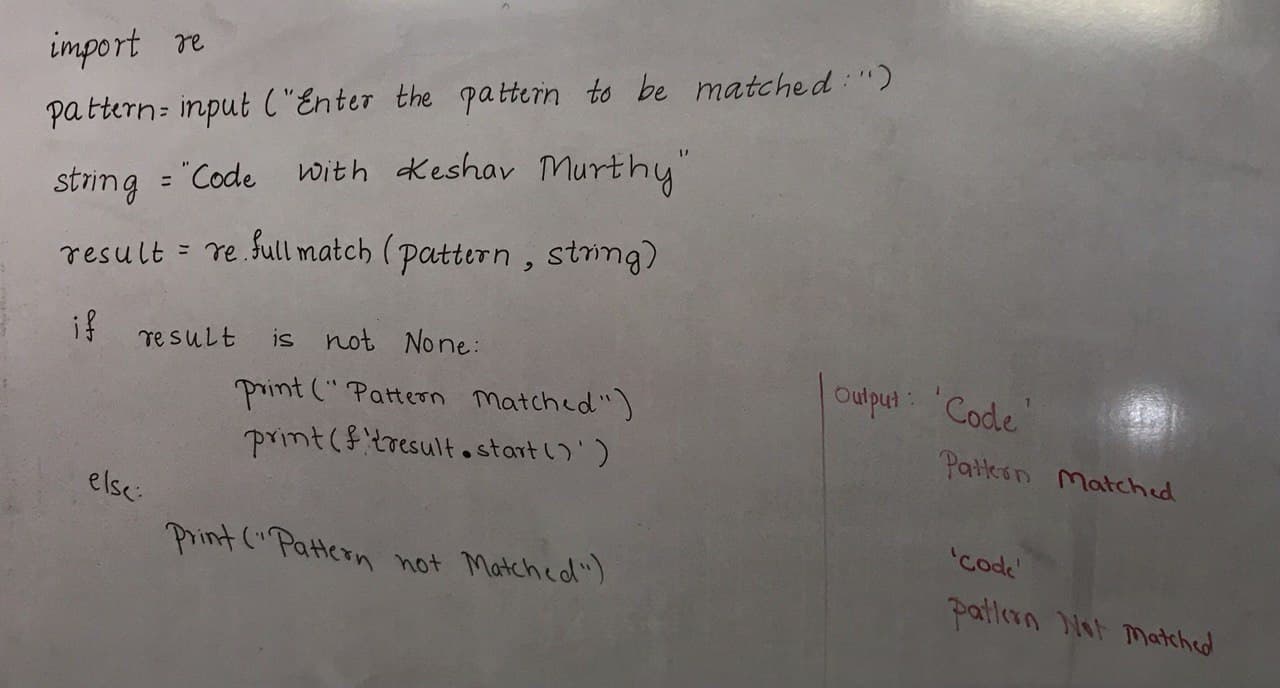 import re
pattern= input ("Enter the pattern to be matched:")
string = "Code with Keshav Murthy"
result = re.fullmatch (pattern, string)
if result is not None:
print("Pattern Matched")
print(f'{result.start()')
else:
print("Pattern not Matched")
Output: 'Code'
Pattern Matched
'code'
Pattern Not Matched